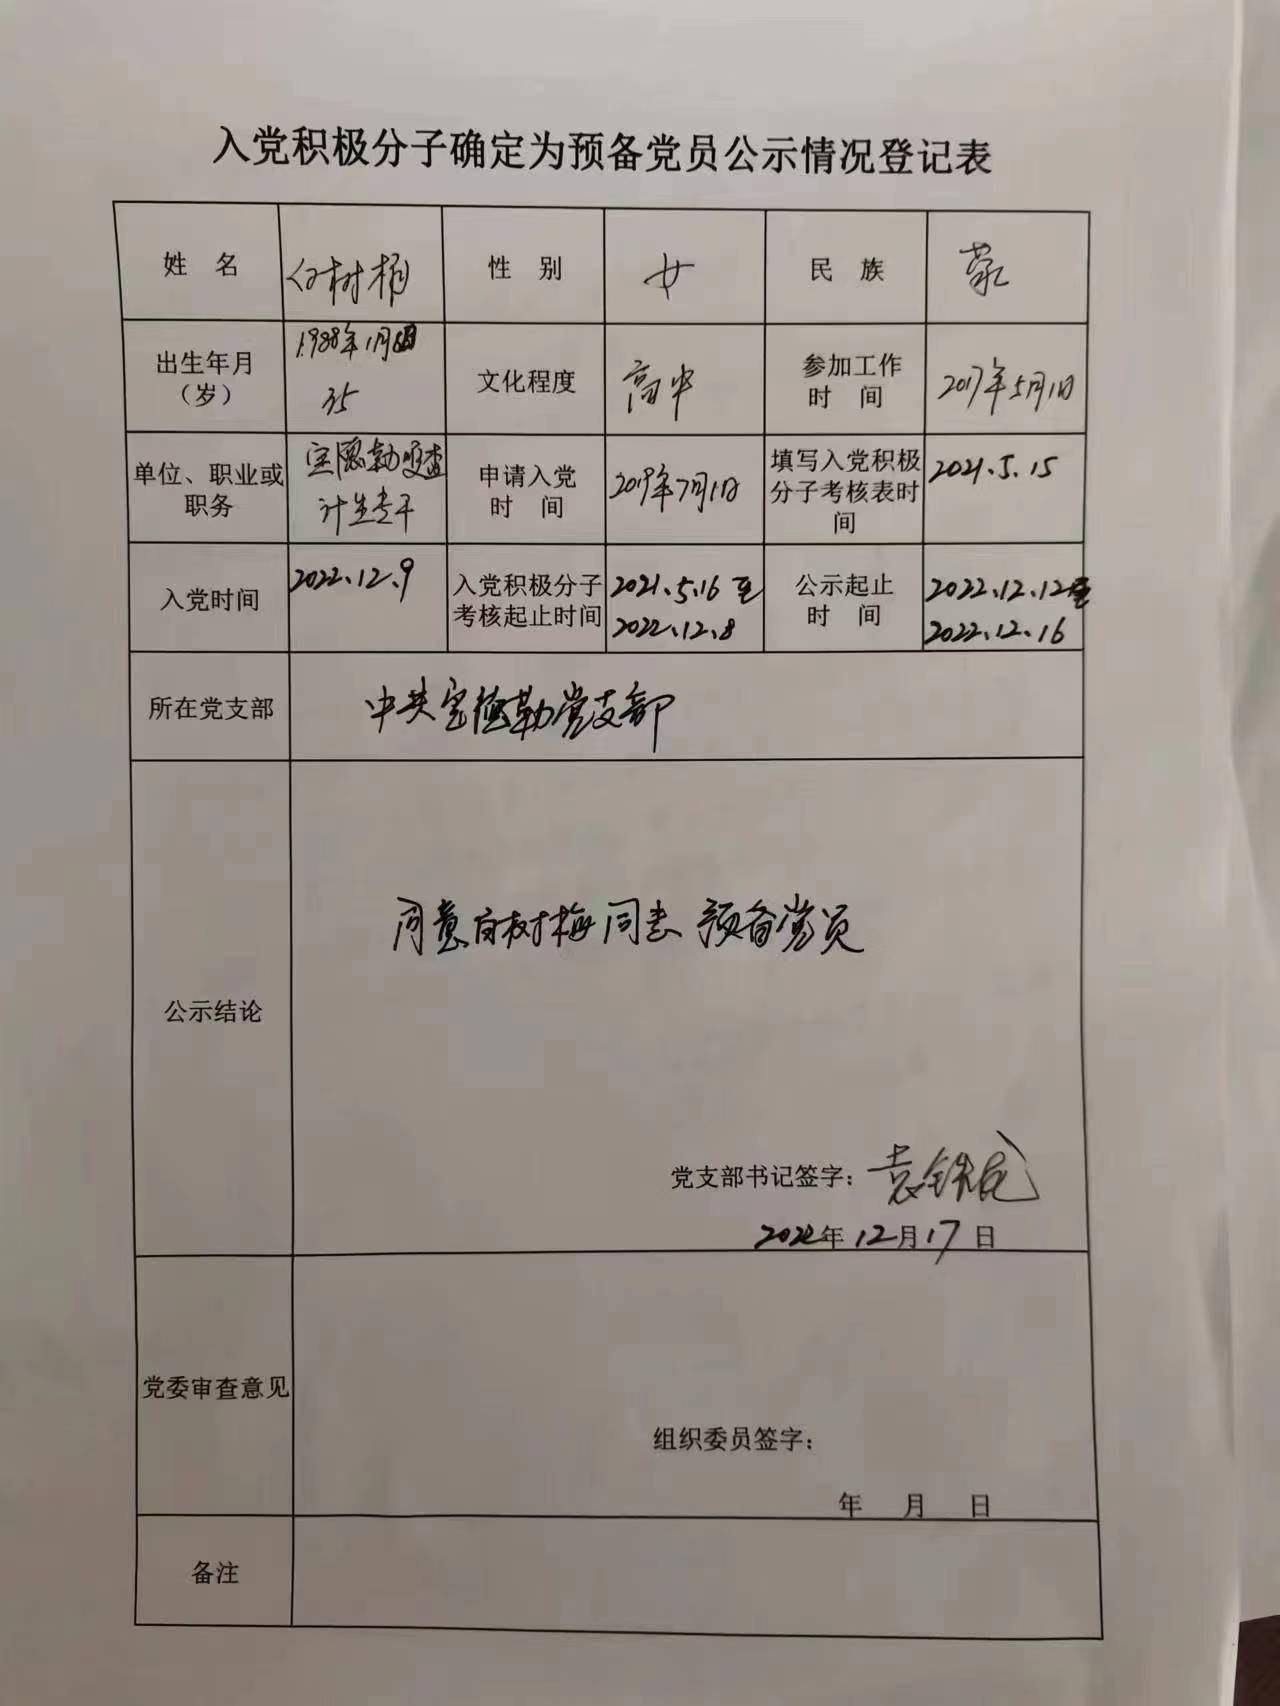 入党积极分子确定为预备党员公示情况登记表
姓 名
树梅
性 别
女
民 族
蒙
出生年月
（岁）
1988年1月
35
文化程度
高中
参加工作
时 间
2017年5月1日
单位、职业或
职务
计生专干
申请入党
时 间
2019年7月1日
填写入党积极
分子考核表时
间
2021.5.15
入党时间
2022.12.9
入党积极分子
考核起止时间
2021.5.16至
2022.12.8
公示起止
时 间
2022.12.12至
2022.12.16
所在党支部
中共宝德勒党支部
公示结论
同意白树梅同志预备党员
党支部书记签字：袁铁
2022年12月17日
党委审查意见
组织委员签字：
年 月 日
备注